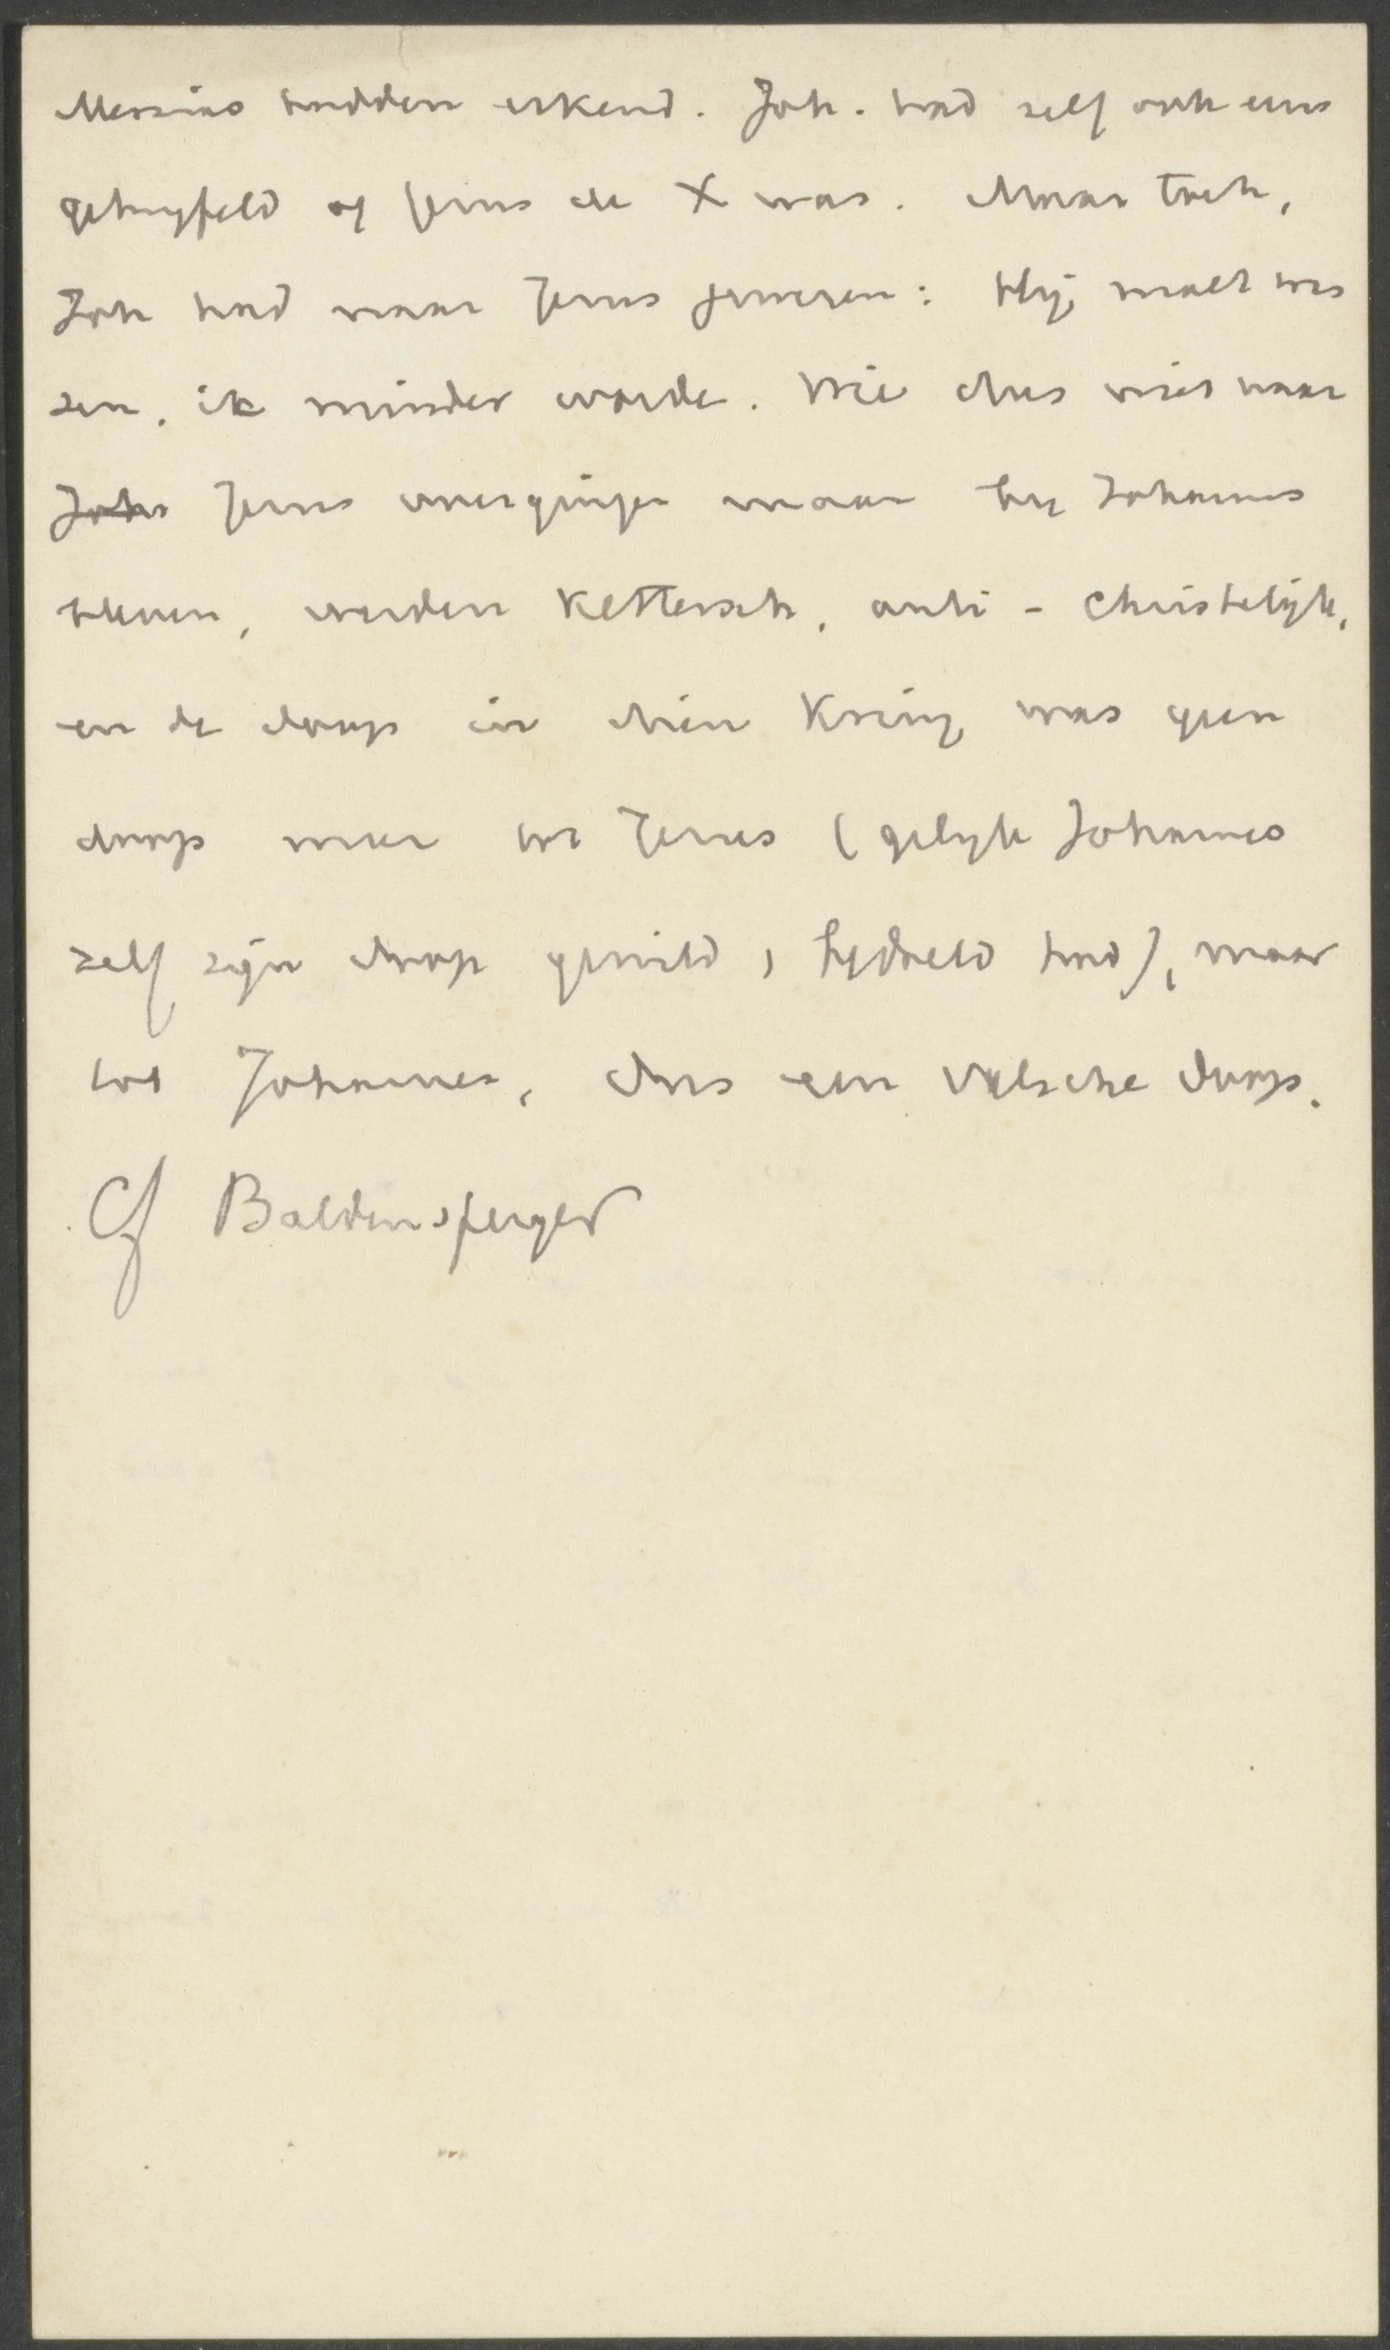 Messias hadden erkend. Joh. had zelf ook eens
getwyfeld of Jezus de X was. Maar toch,
Joh had naar Jezus gewezen: Hij moet was
sen, ik minder worde. Wie dus niet naar
Joha Jezus overgingen maar by Johannes
bleven, werden Kettersch, anti - christelijk,
en de doop in dien Kring was geen
doop meer tot Jezus (gelyk Johannes
zelf zijn doop gewild, bedoeld had), maar
tot Johannes, dus een valsche doop.
Cf Baldensperger